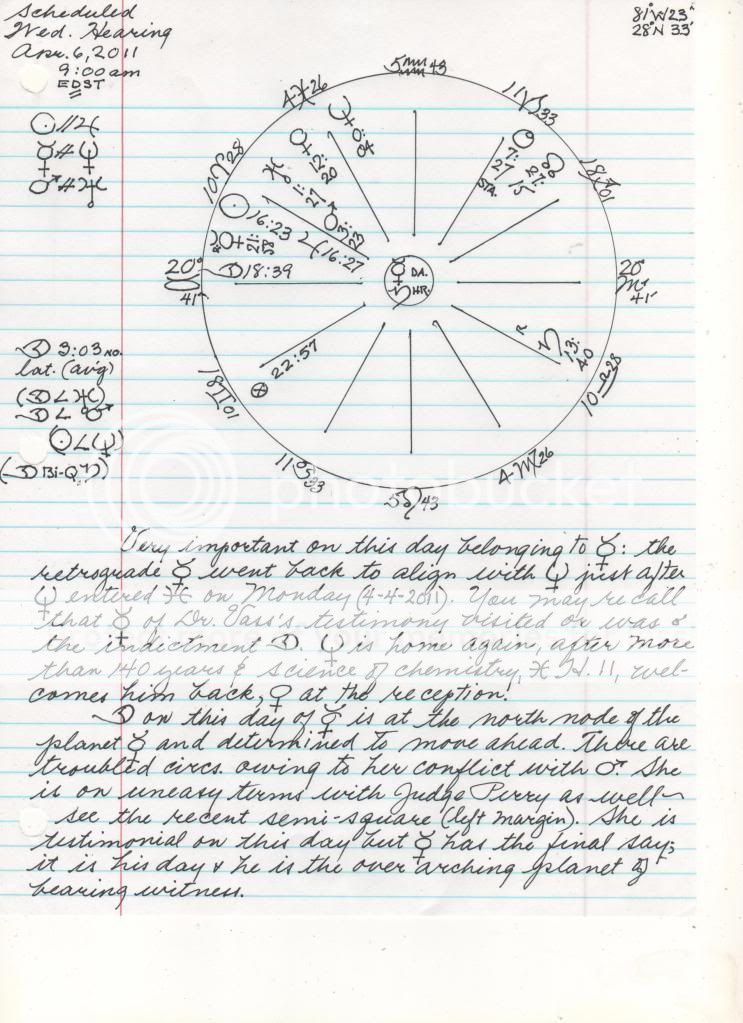 Scheduled
Wed. Hearing
Apr. 6, 2011
9:00 am
EDST
81°W23'
28°N 33'
☉//♃
☿#♆
♂#♅
5♒43
11♑33
18♐01
20° ♏ 41'
10♎28
4♍26
5♌43
11♋33
18♊01
20° ♉ 41'
10♈28
4♓26
☽18:39
☉16:23
♃16:27
STA.
13:40
⊗ 22:57
☿ DA.
♄ HR.
☽ 3:03 NO.
lat. (avg)
(☽∠♅)
☽∠♂
☉∠(♆)
(☽Bi-Q♄)
Very important on this day belonging to ☿: the
retrograde ☿ went back to align with ♆ just after
♆ entered ♓ on Monday (4-4-2011). You may recall
that ☿ of Dr. Vass's testimony visited or was ☌
the indictment ☽. ♆ is home again, after more
than 140 years & science of chemistry, ♓ H. 11, wel-
comes him back, ♀ at the reception!
☽ on this day of ☿ is at the north node of the
planet ☿ and determined to move ahead. There are
troubled circs. owing to her conflict with ♂. She
is on uneasy terms with Judge Perry as well~
see the recent semi-square (left margin). She is
testimonial on this day but ☿ has the final say;
it is his day & he is the over arching planet of
bearing witness.
photobucket